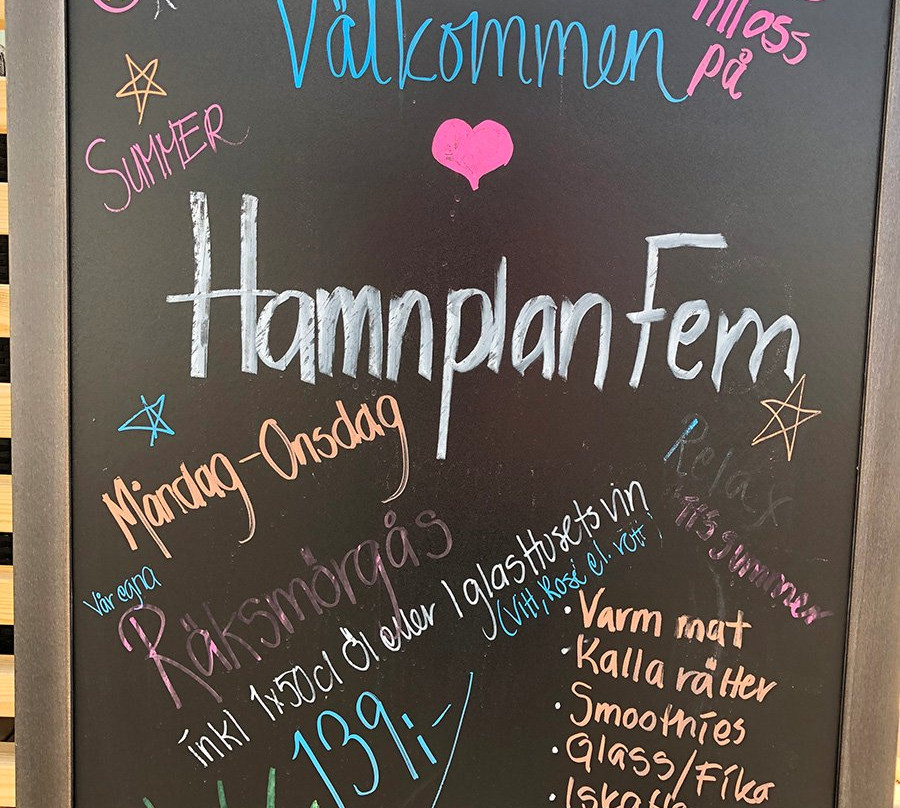 Välkommen
tilloss
på
SUMMER
Hamnplan Fem
Måndag-Onsdag
Relax
it's summer
Vår egna
Räksmörgås
inkl 1x50cl Öl eller 1 glas Husets vin
(Vitt, Rosé el. rött)
139:-
• Varm mat
• Kalla rätter
• Smoothies
• Glass/Fika